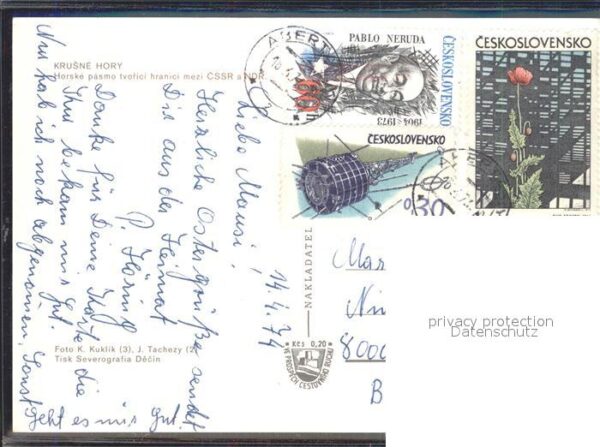 KRUŠNÉ HORY
Horské pásmo tvořící hranici mezi ČSSR a NDR.
14.4.74
Liebe Mausi!
Herzliche Ostergrüße sendet
Dir aus der Heimat
P. 
Danke für Deine Karte die
bekam mir gut.
Nur hab ich noch abgenomen, Sonst
geht es mir gut.
Foto K. Kuklík (3), J. Tachezy (2)
Tisk Severografia Děčín
NAKLADATEL
Kčs 0,20
VE PROSPĚCH CESTOVNÍHO RUCHU
ABERT
PABLO NERUDA
1904-1973
60h
ČESKOSLOVENSKO
ČESKOSLOVENSKO
0,30
ČESKOSLOVENSKO
ABERT
Mar
Ni
8000
B
privacy protection
Datenschutz